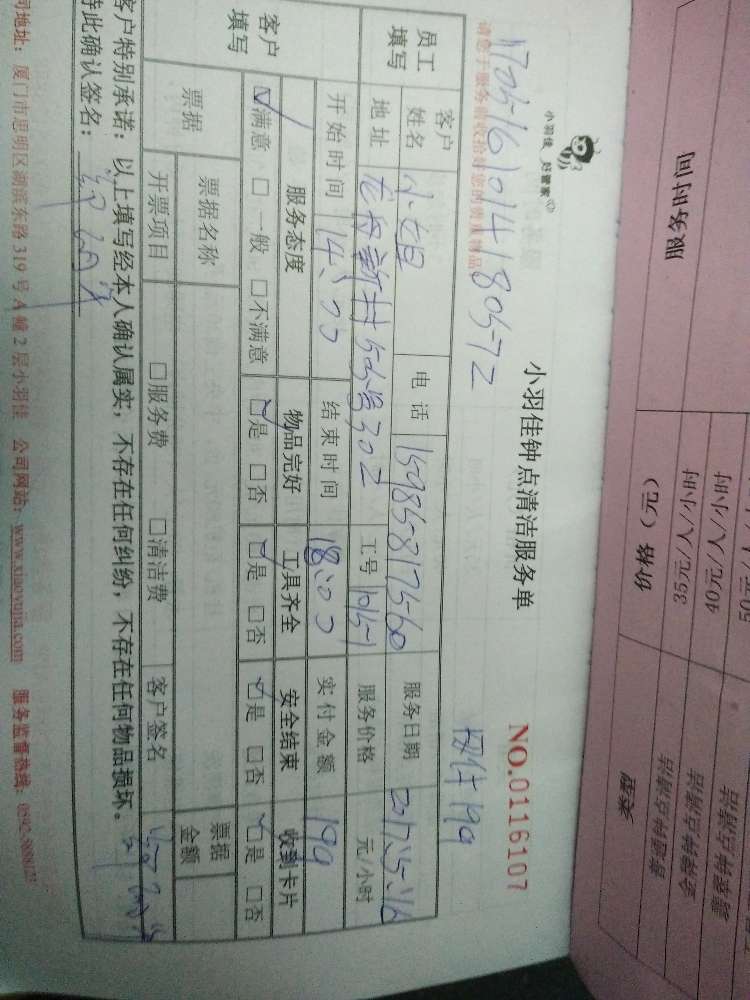 小羽佳 好管家
小羽佳钟点清洁服务单
NO.0116107
请您于服务前收拾好您的贵重物品
17051610141180572
网付199
员工填写
客户姓名 小姐 电话 15985817560 服务日期 2017.5.16
地址 302 工号 1051 服务价格 元/小时
开始时间 14:00 结束时间 18:00 实付金额 199
客户填写
服务态度 物品完好 工具齐全 安全结束 收到卡片
☑满意 □一般 □不满意 ☑是 □否 ☑是 □否 ☑是 □否 ☑是 □否
票据 票据名称 票据金额
开票项目 □服务费 □清洁费 客户签名
客户特别承诺：以上填写经本人确认属实，不存在任何纠纷，不存在任何物品损坏。
特此确认签名：
司地址：厦门市思明区湖滨东路319号A幢2层小羽佳 公司网站：www.xiaoyujia.com 服务监督热线：0592-
服务时间
价格（元）
类型
35元/人/小时
40元/人/小时
50元/